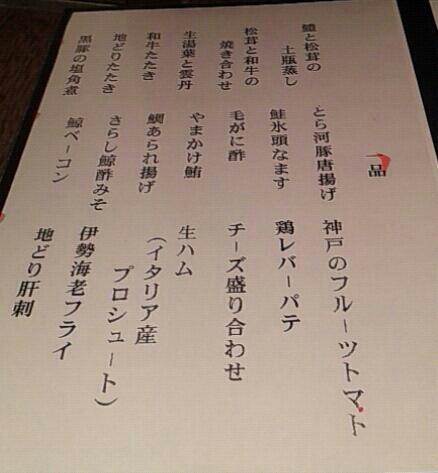 一品
鱧と松茸の
土瓶蒸し
松茸と和牛の
焼き合わせ
生湯葉と雲丹
和牛たたき
地どりたたき
黒豚の塩角煮
とら河豚唐揚げ
鮭氷頭なます
毛がに酢
やまかけ鮪
鯛あられ揚げ
さらし鯨酢みそ
鯨ベーコン
神戸のフルーツトマト
鶏レバーパテ
チーズ盛り合わせ
生ハム
(イタリア産
プロシュート)
伊勢海老フライ
地どり肝刺